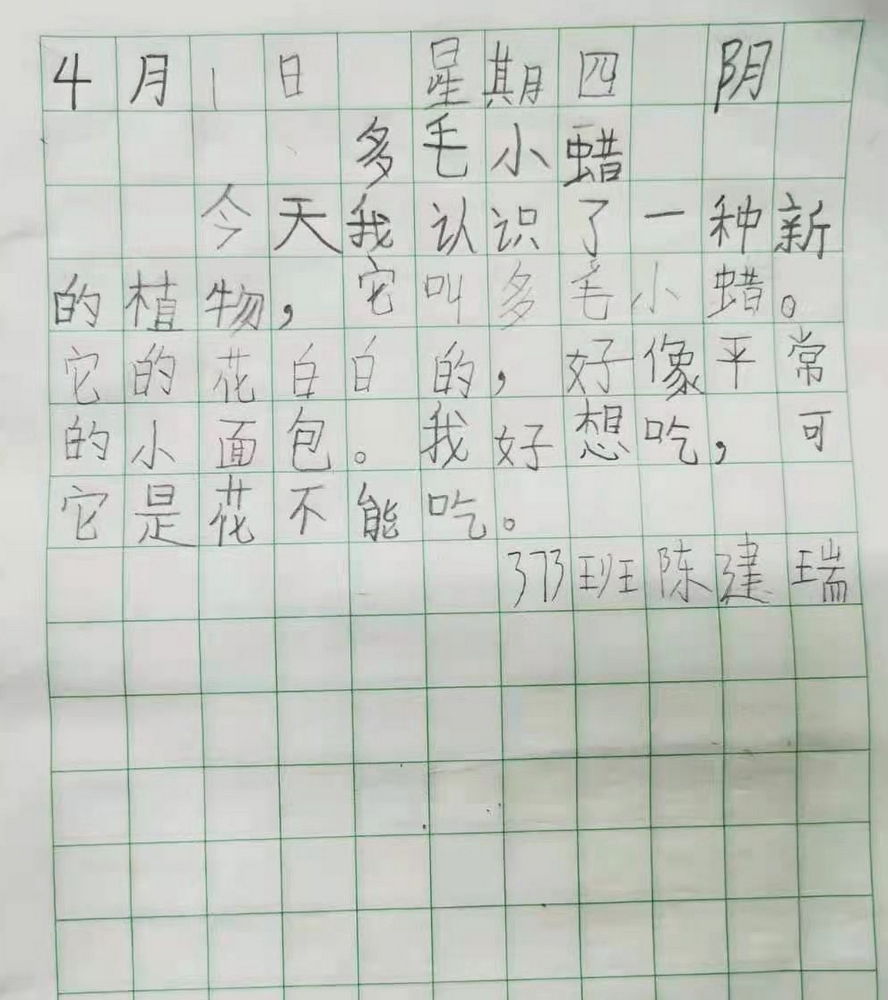 4月1日 星期四 阴
多毛小蜡
今天我认识了一种新
的植物，它叫多毛小蜡。
它的花白白的，好像平常
的小面包。我好想吃，可
它是花不能吃。
373班陈建瑞